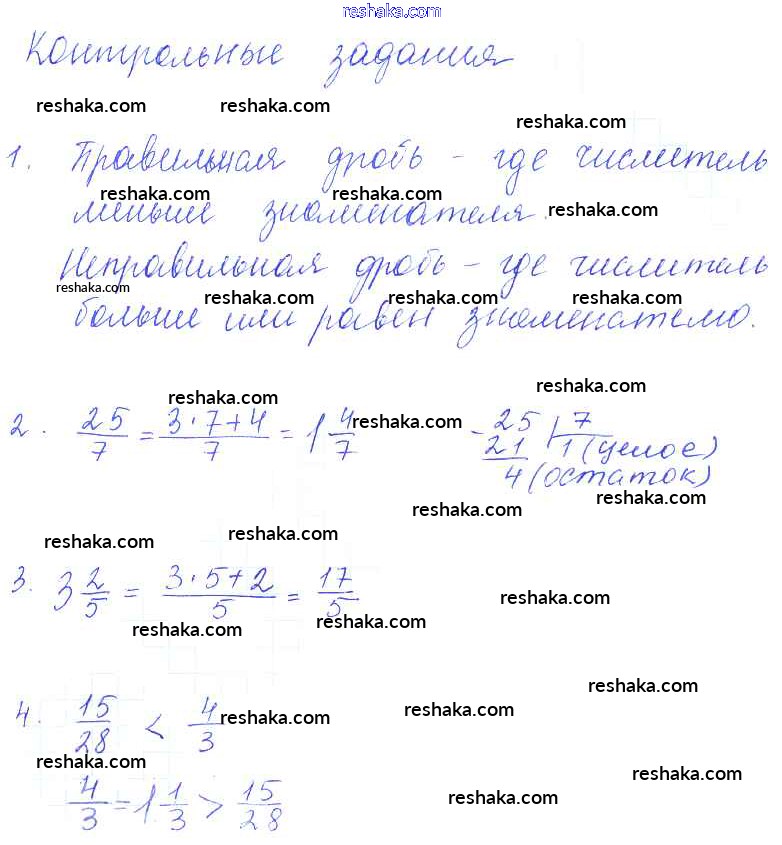 reshaka.com
Контрольные задания
reshaka.com reshaka.com reshaka.com
1. Правильная дробь - где числитель
reshaka.com reshaka.com reshaka.com
меньше знаменателя.
Неправильная дробь - где числитель
reshaka.com reshaka.com reshaka.com reshaka.com
больше или равен знаменателю.
reshaka.com reshaka.com
2. 25/7 = 3·7+4/7 = 1 4/7 - 25 | 7
reshaka.com
21 1 (целое)
4 (остаток)
reshaka.com reshaka.com
reshaka.com reshaka.com
3. 3 2/5 = 3·5+2/5 = 17/5
reshaka.com
reshaka.com reshaka.com
reshaka.com
4. 15/28 < 4/3
reshaka.com reshaka.com
reshaka.com reshaka.com
4/3 = 1 1/3 > 15/28
reshaka.com